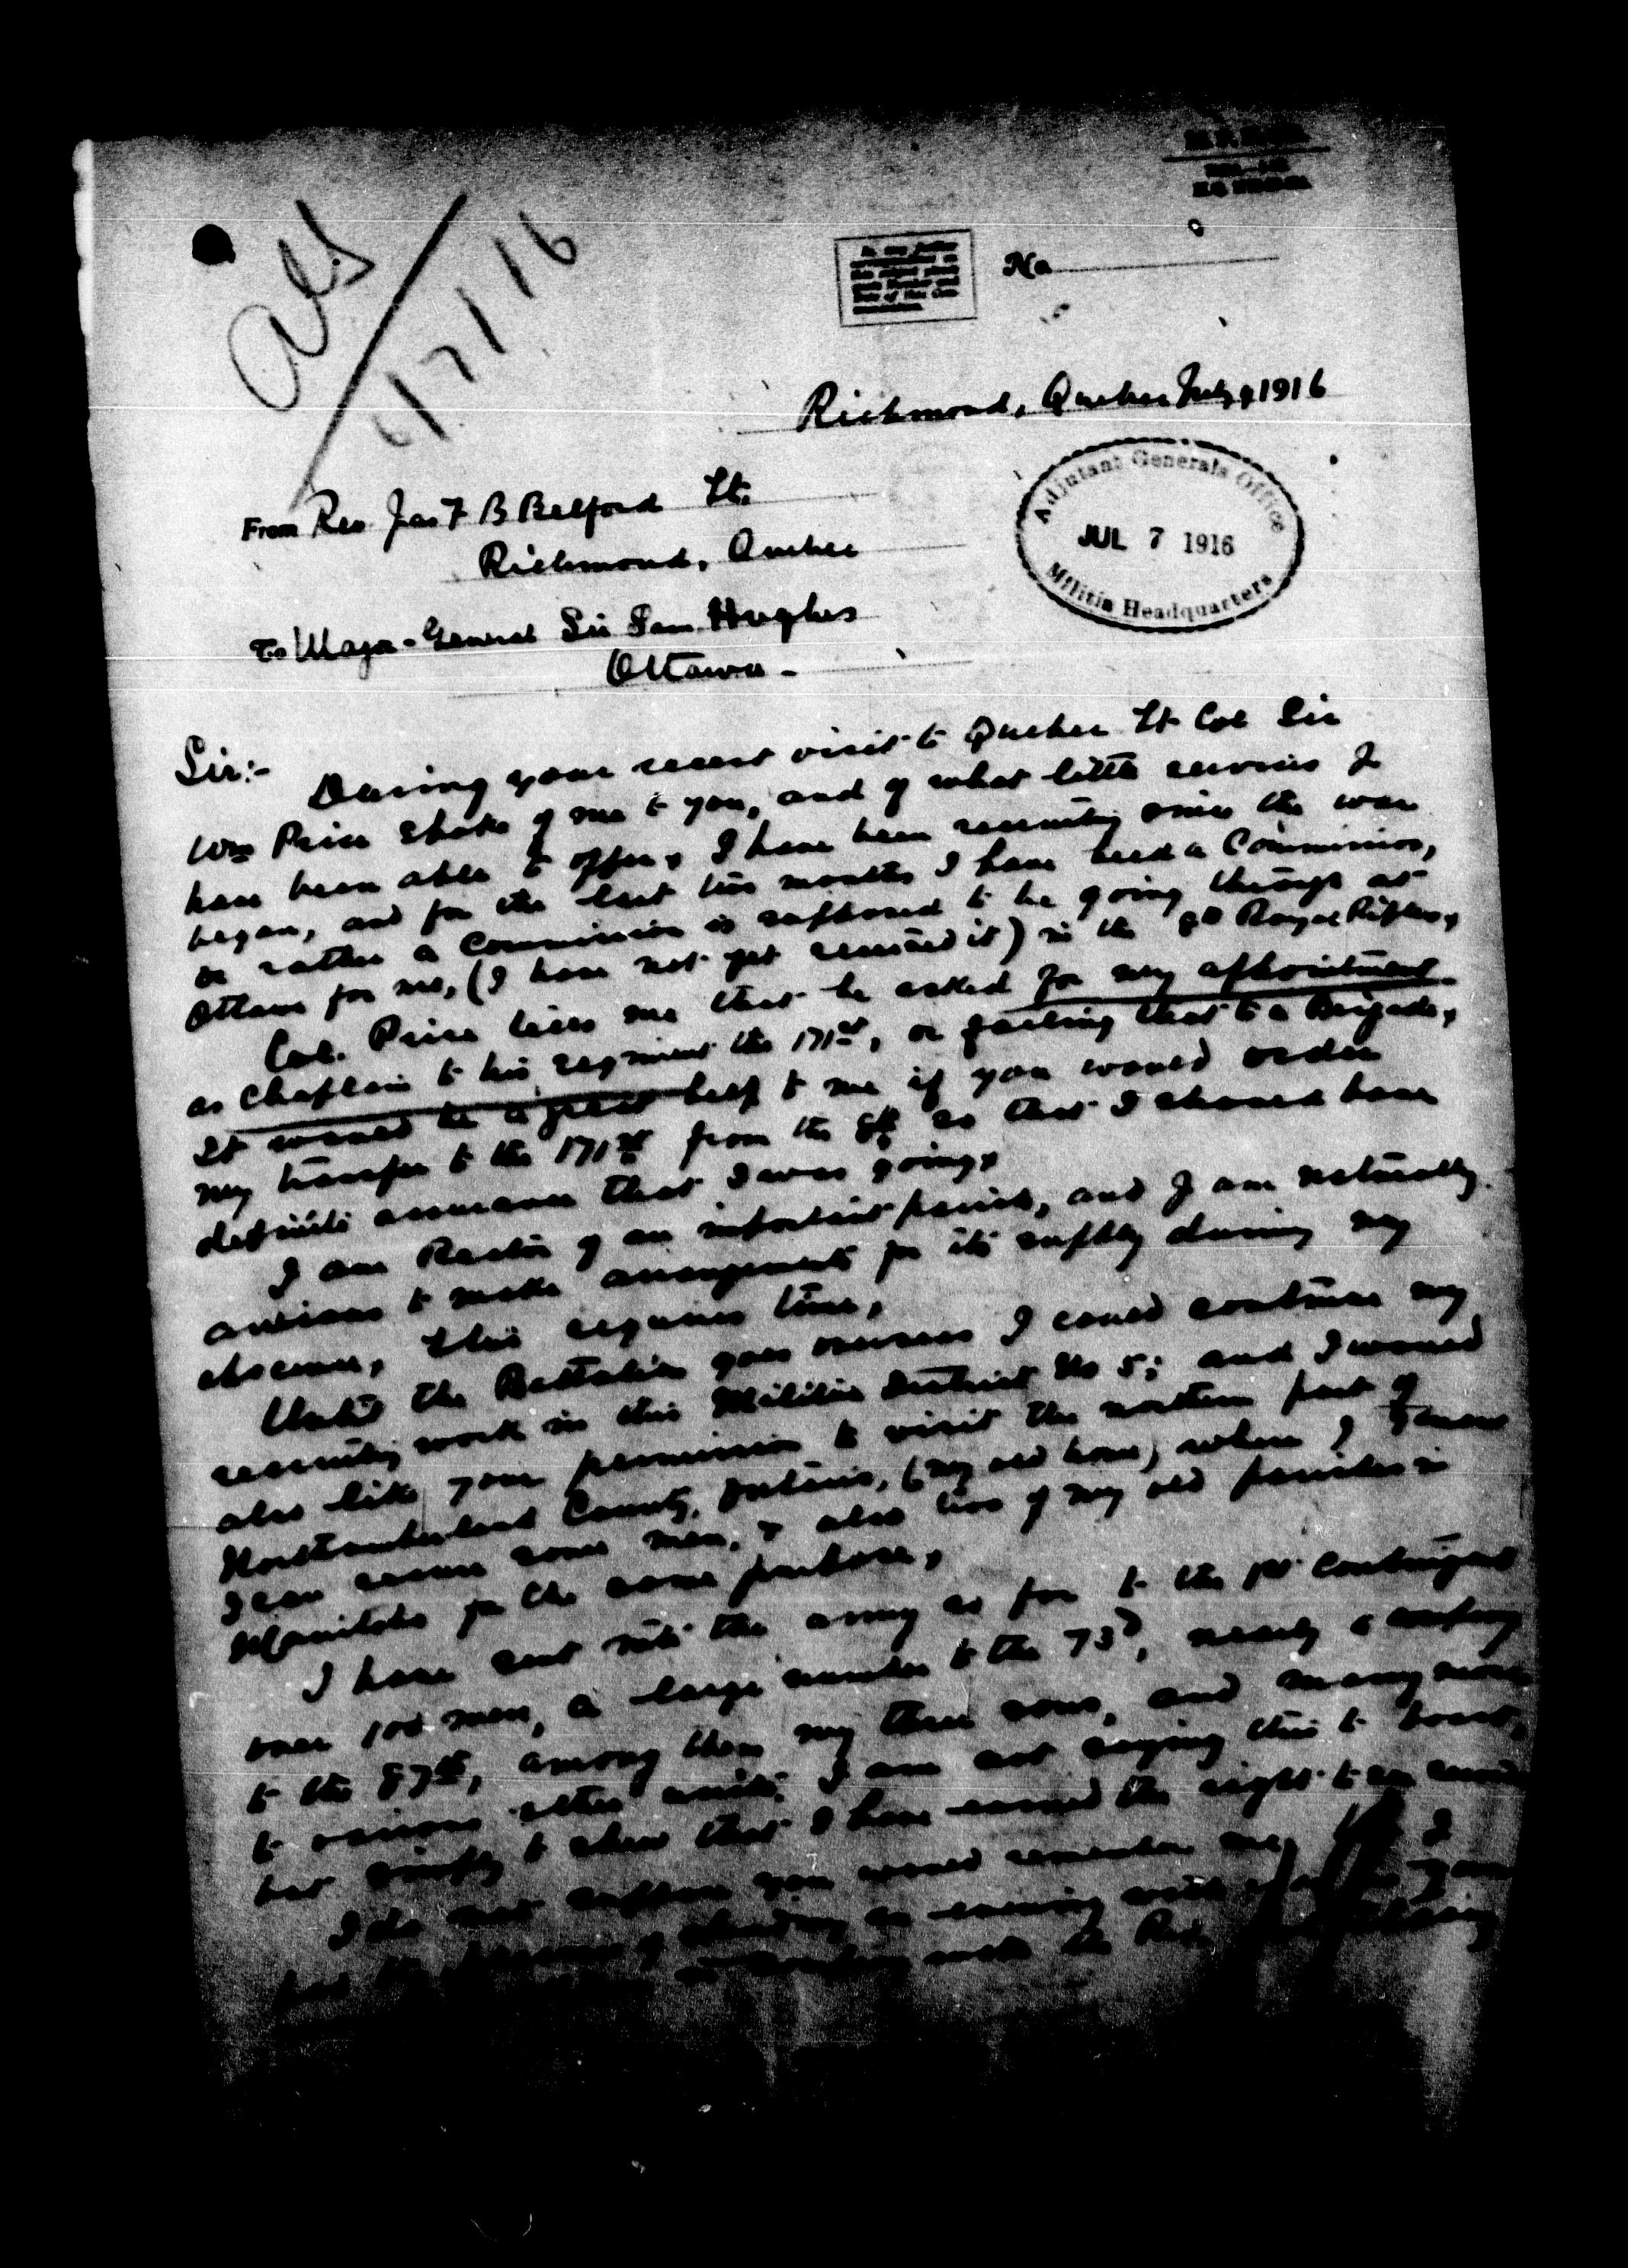 als
6/7/16
In any further
correspondence on
this subject please
quote Number and
Date of this Com-
munication.
No
Richmond, Quebec July 4 1916
Adjutant Generals Office
JUL 7 1916
Militia Headquarters
From Rev Jas F B Belford Lt.
Richmond, Quebec
To Major-General Sir Sam Hughes
Ottawa -
Sir:-
During your recent visit to Quebec Lt Col Sir
Wm Price spoke of me to you, and of what little services I
have been able to offer. I have been recruiting since the war
began, and for the last two months I have held a Commission,
or rather a Commission is supposed to be going through at
Ottawa for me, (I have not yet received it) in the 8th Royal Rifles.
Col. Price tells me that he asked for my appointment
as Chaplain to his regiment the 171st, or failing that to a Brigade.
It would be a great help to me if you would order
my transfer to the 171st from the 8th so that I should have
definite assurance that I was going.
I am Rector of an important parish, and I am naturally
anxious to make arrangements for its supply during my
absence, this requires time.
Until the Battalion goes overseas I could continue my
recruiting work in this Militia District No 5; and I would
also like your permission to visit the northern part of
Northumberland County, Ontario, (my old home) where I know
I can secure some men, & also two of my old parishes in
Manitoba for the same purpose.
I have sent into the army so far to the 1st Contingent
over 100 men, a large number to the 73d, nearly a company
to the 87th, among them my three sons, and many more
to various other units. I am not saying this to boast,
but simply to show that I have earned the right to
I do not suppose you would remember me, I
had the pleasure of spending an evening with
with the Rev.